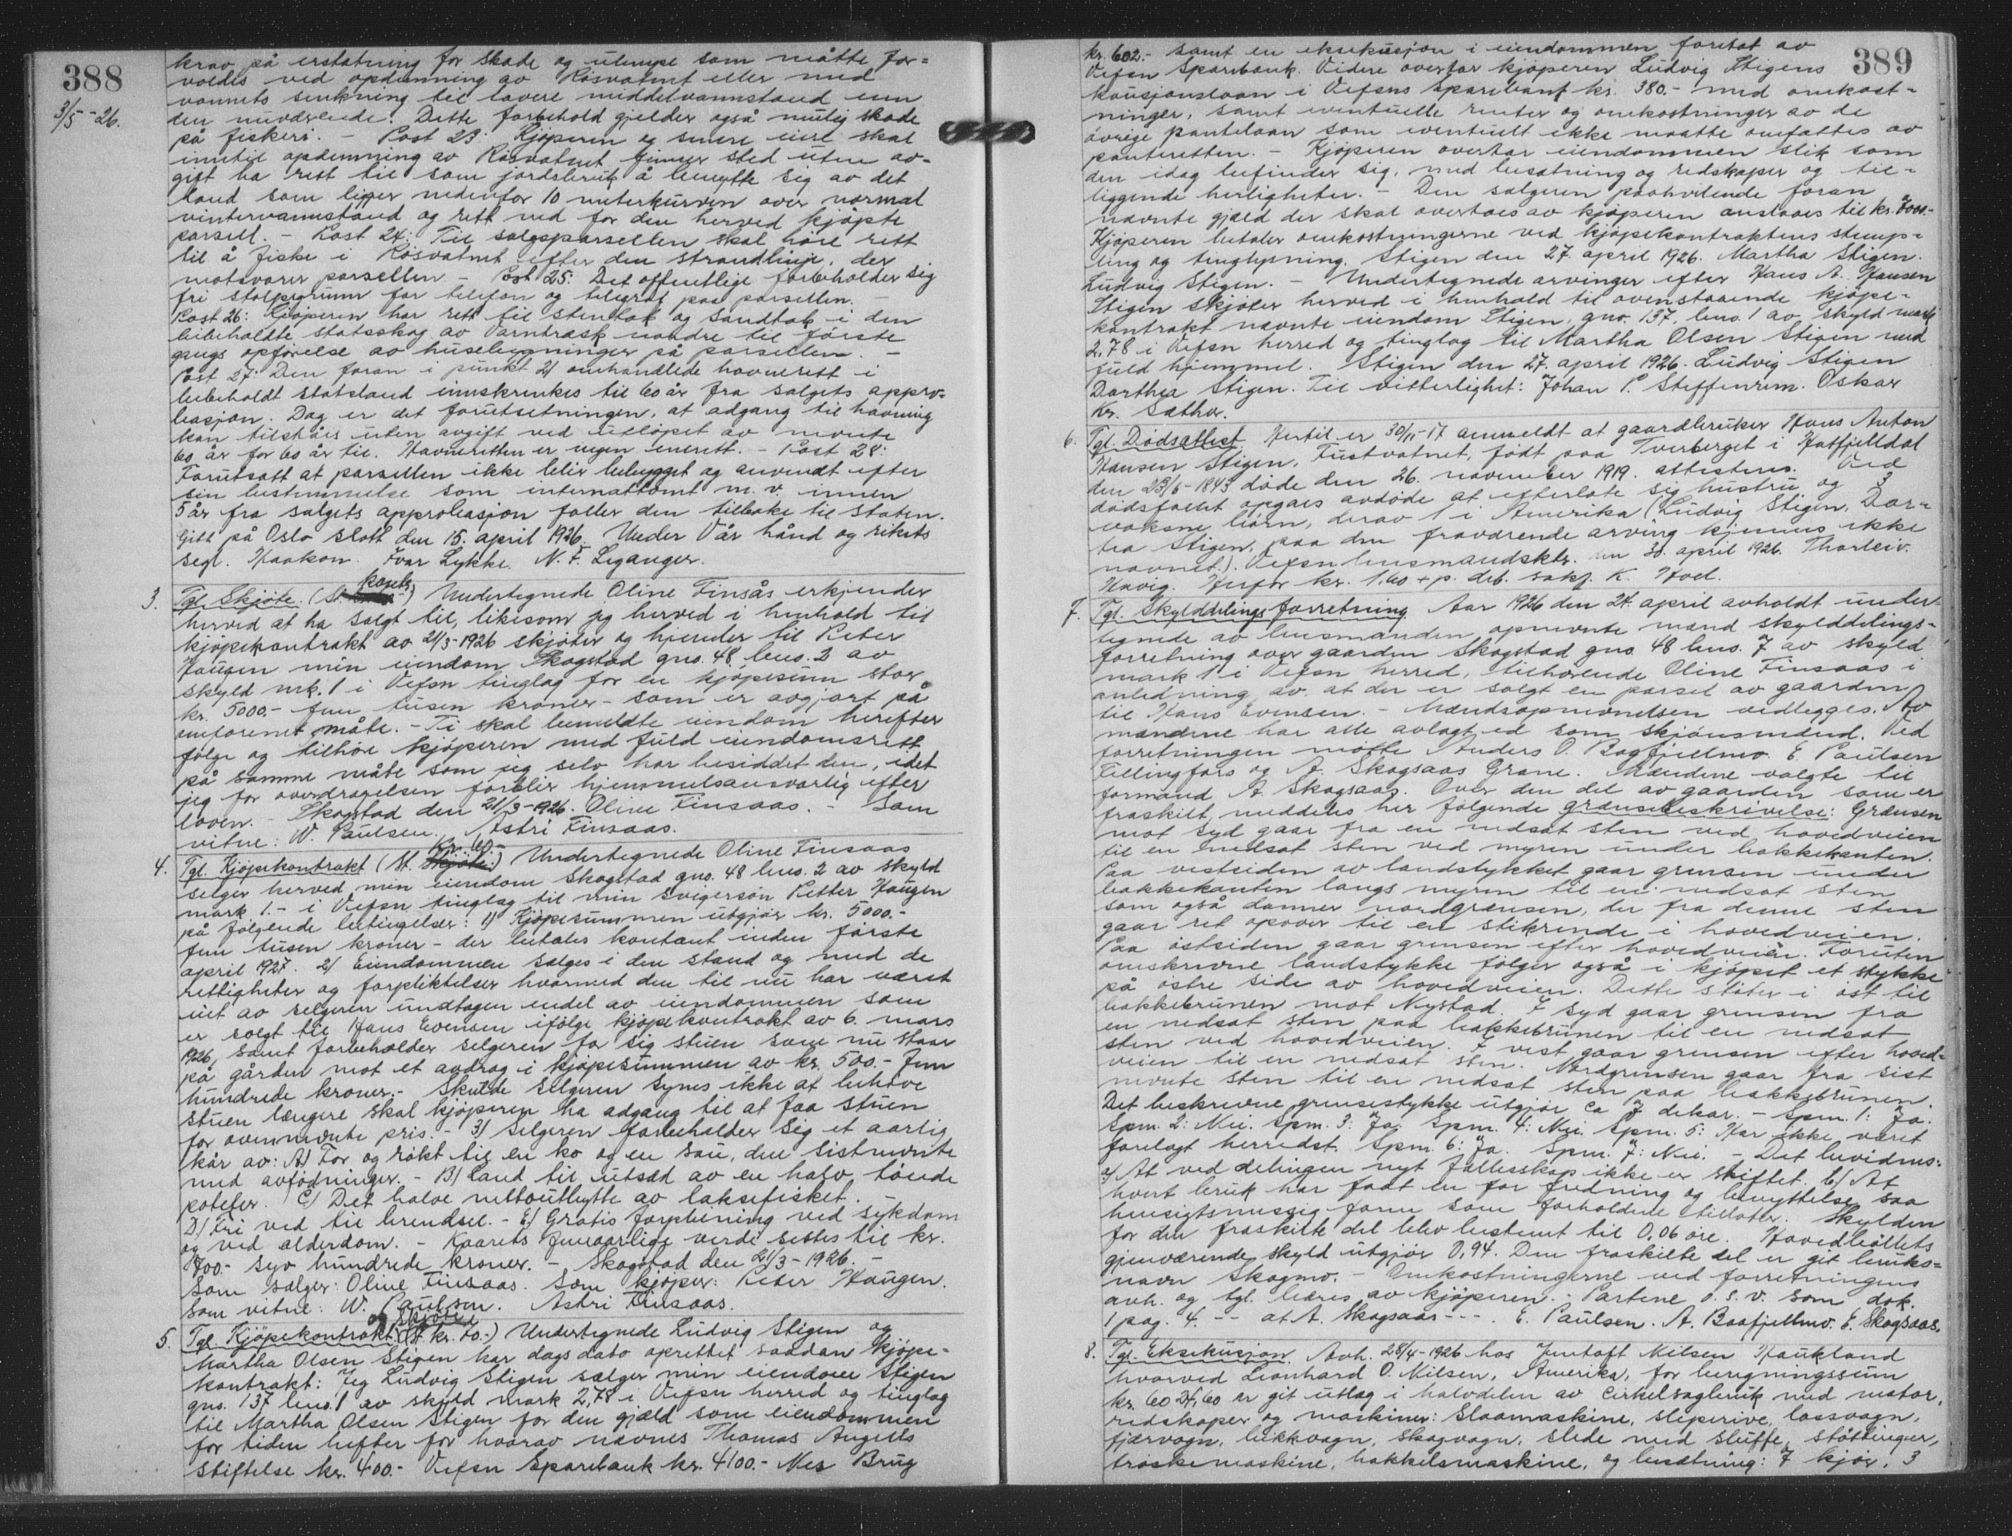 388
3/5-26.
krav på erstatning for skade og ulempe som måtte for=
voldes ved opdemning av Røsvatnet eller med
vannets senkning til lavere middelvannstand enn
den nuværende. Dette forbehold gjelder også mulig skade
på fiskeri. - Post 23. Kjøperen og senere eiere skal
inntil opdemning av Røsvatnet finner sted uten av-
gift ha rett til som jordsbruk å benytte sig av det
land som ligger nedenfor 10 meterkurven over normal
vintervannstand og rett ned for den herved kjøpte
parsell. - Post 24: Til salgsparsellen skal høre rett
til å fiske i Røsvatnet efter den strandlinje, der
motsvarer parsellen - Post 25. Det offentlige forbeholder sig
fri stolpegrunn for telefon og telegraf paa parsellen. -
Post 26: Kjøperen har rett til stentak og sandtak i den
beholdte statsskog av Varntræsk nordre til første
gangs opførelse av husebygninger på parsellen. -
Post 27: Den foran i punkt 21 omhandlede havnerett i
beholdt statsland innskrenkes til 60 år fra salgets appro-
basjon. Dog er det forutsetningen, at adgang til havning
kan tilståes uten avgift ved utløpet av nevnte
60 år for 60 år til. Havneretten er ingen enerett. - Post 28:
Forutsatt at parsellen ikke blir bebygget og anvendt efter
sin bestemmelse som internattomt m.v. innen
5 år fra salgets approbasjon faller den tilbake til staten.
Gitt på Oslo slott den 15. april 1926. Under Vår hånd og rikets
segl. Haakon. Ivar Lykke. N. F. Leganger.
3. Tgl. Skjøte. (St. kontr.) Undertegnede Oline Finsås erkjender
herved at ha solgt til, likesom jeg herved i henhold til
kjøpekontrakt av 21/3-1926 skjøter og hjemler til Peter
Haugen min eiendom Skogstad gno. 48 bno. 2 av
skyld mk. 1 i Vefsn tinglag for en kjøpesum stor
kr. 5000.- fem tusen kroner - som er avgjort på
omforenet måte. - Ti skal bemeldte eiendom herefter
følge og tilhøre kjøperen med fuld eiendomsrett
på samme måte som jeg selv har besiddet den, idet
jeg for overdragelsen forblir hjemmelsansvarlig efter
loven. - Skogstad den 21/3-1926. Oline Finsaas. - Som
vitne: W. Paulsen. Astri Finsaas.
4. Tgl. Kjøpekontrakt (St. kr. 10.-) Undertegnede Oline Finsaas
selger herved min eiendom Skogstad gno. 48 bno. 2 av skyld
mark 1.- i Vefsn tinglag til min svigersøn Petter Haugen
på følgende betingelser: 1) Kjøpesummen utgjør kr. 5000.-
fem tusen kroner - der betales kontant inden første
april 1927. 2) Eiendommen sælges i den stand og med de
rettigheter og forpliktelser hvormed den til nu har været
eiet av selgeren undtagen endel av eiendommen som
er solgt til Hans Evensen ifølge kjøpekontrakt av 6. mars
1926, samt forbeholder selgeren for sig stuen som nu staar
på gården mot et avdrag i kjøpesummen av kr. 500.- fem
hundrede kroner. - Skulde selgeren synes ikke at behøve
stuen længere skal kjøperen ha adgang til at faa stuen
for ovennevnte pris. - 3) Selgeren forbeholder sig et aarlig
kår av: A) For og røkt til en ko og en sau, den sistnevnte
med avfødninger. - B) Land til utsæd av en halv tønde
poteter. C) Det halve nettoutbytte av laksefisket.
D) Fri ved til brendsel. - E) Gratis forpleining ved sykdom
og ved alderdom. - Kaarets femaarlige verdi settes til kr.
700.- syv hundrede kroner. - Skogstad den 21/3-1926. -
Som sælger: Oline Finsaas. Som kjøper: Peter Haugen.
Som vitne: W. Paulsen. Astri Finsaas.
5. Tgl. Kjøpekontrakt og skjøte (St. kr. 10.-) Undertegnede Ludvig Stigen og
Martha Olsen Stigen har dags dato oprettet saadan kjøpe-
kontrakt: Jeg Ludvig Stigen sælger min eiendom Stigen
gno. 137 bno. 1 av skyld mark 2,78 i Vefsn herred og tinglag
til Martha Olsen Stigen for den gjæld som eiendommen
for tiden hefter for hvorav nævnes Thomas Angells
Stiftelse kr. 400.- Vefsn Sparebank kr. 4100.- Nes Brug
389
kr. 602.- samt en eksekusjon i eiendommen foretat av
Vefsn Sparebank. Videre overtar kjøperen Ludvig Stigens
kausjonslaan i Vefsns Sparebank kr. 380.- med omkost-
ninger, samt eventuelle renter og omkostninger av de
øvrige pantelaan som eventuelt ikke maatte omfattes av
panteretten. - Kjøperen overtar eiendommen slik som
den idag befinder sig, med besætning og redskaper og til-
liggende herligheter. - Den sælgeren paahvilende foran
nævnte gjæld der skal overtaes av kjøperen anslaaes til kr. 7000.-
Kjøperen betaler omkostningerne ved kjøpekontraktens stemp-
ling og tinglysning. Stigen den 27. april 1926. Martha Stigen.
Ludvig Stigen. - Undertegnede arvinger efter Hans A. Hansen
Stigen skjøter herved i henhold til ovenstaaende kjøpe-
kontrakt nævnte eiendom Stigen, gno. 137, bno. 1 av skyld mark
2,78 i Vefsn herred og tinglag til Martha Olsen Stigen med
fuld hjemmel. Stigen den 27. april 1926. Ludvig Stigen
Dorthea Stigen. Til vitterlighet: Johan P. Steffenrem. Oskar
Kr. Sæther.
6. Tgl. Dødsattest. Hertil er 30/11-17 anmeldt at gaardbruker Hans Anton
Hansen Stigen, Fustvatnet, født paa Tverberget i Hatfjelldal
den 23/6-1843 døde den 26. november 1919. attesteres. Ved
dødsfallet opgaes avdøde at efterlate sig hustru og 3
voksne barn, derav 1 i Amerika (Ludvig Stigen, Dor-
tea Stigen, paa den fraværende arving kjennes ikke
navnet). Vefsn lensmandsktr. den 30. april 1926. Thorleiv.
Havig. Herfor kr. 1.60 + p. deb. sakf. K. Hoel.
7. Tgl. Skylddelingsforretning. Aar 1926 den 24. april avholdt under-
tegnede av lensmanden opnevnte mænd skylddelings-
forretning over gaarden Skogstad gno. 48 bno. 7 av skyld
mark 1 i Vefsn herred, tilhørende Oline Finsaas i
anledning av, at der er solgt en parsel av gaarden
til Hans Evensen. - Mændsopnevnelsen vedlegges. Av
mændene har alle avlagt ed som skjønsmænd. Ved
forretningen møtte Anders O. Baafjellmo. E. Paulsen
Fillingfors og A. Skogsaas Grane. Mændene valgte til
formand A. Skogsaas. Over den del av gaarden som er
fraskilt, meddeles her følgende grænsebeskrivelse: Grænsen
mot syd gaar fra en nedsat sten ved hovedveien
til en nedsat sten ved myren under bakkekanten.
Paa vestsiden av landstykket gaar grensen under
bakkekanten langs myren til en nedsat sten
som også danner nordgrænsen, der fra denne sten
gaar ret opover til en stikrende i hovedveien.
Paa østsiden gaar grensen efter hovedveien. Foruten
omskrevne landstykke følger også i kjøpet et stykke
på østre side av hovedveien. Dette støter i øst til
bakkebrunen mot Nystad. I syd gaar grensen fra
en nedsat sten paa bakkebrunen til en nedsat
sten ved hovedveien. I vest gaar grensen efter hoved-
veien til en nedsat sten. Nordgrensen gaar fra sist
nevnte sten til en nedsat sten paa bakkebrunen.
Det beskrevne grensestykke utgjør ca 7 dekar. - Spm. 1: Ja.
Spm. 2: Nei. Spm. 3: Ja. Spm. 4: Nei. Spm. 5: Har ikke været
forelagt herredst. Spm. 6: Ja. Spm. 7: Nei. - Det bevidnes:
a) At ved delingen nyt fællesskap ikke er skiftet. b) At
hvert bruk har faat en for fredning og benyttelse saa
hensigtsmessig form som forholdene tillater. Skylden
for den fraskilte del blev bestemt til 0,06 øre. Hovedbølets
gjenværende skyld utgjør 0,94. Den fraskilte del er git bruks-
navn Skogmo. - Omkostningerne ved forretningens
avh. og tgl. bæres av kjøperen. - Partene o.s.v. som dok.
1 pag. 4. -- at A. Skogsaas ---. E. Paulsen. A. Baafjellmo. E. Skogsaas.
8. Tgl. Eksekusjon. Avh. 28/4-1926 hos Jentoft Nilsen Haukland
hvorved Leonhard O. Nilsen, Amerika, for begn
kr. 60 24,60 er git utlæg i halvdelen av cirkelsagbruk med motor,
redskaper og maskiner: Slaamaskine, sleperive, lassvogn,
fjærvogn, lukkvogn, skogvogn, slede med sluffe, støttinger,
træskemaskine, hakkelsmaskine, og besætning: 7 kjør, 3